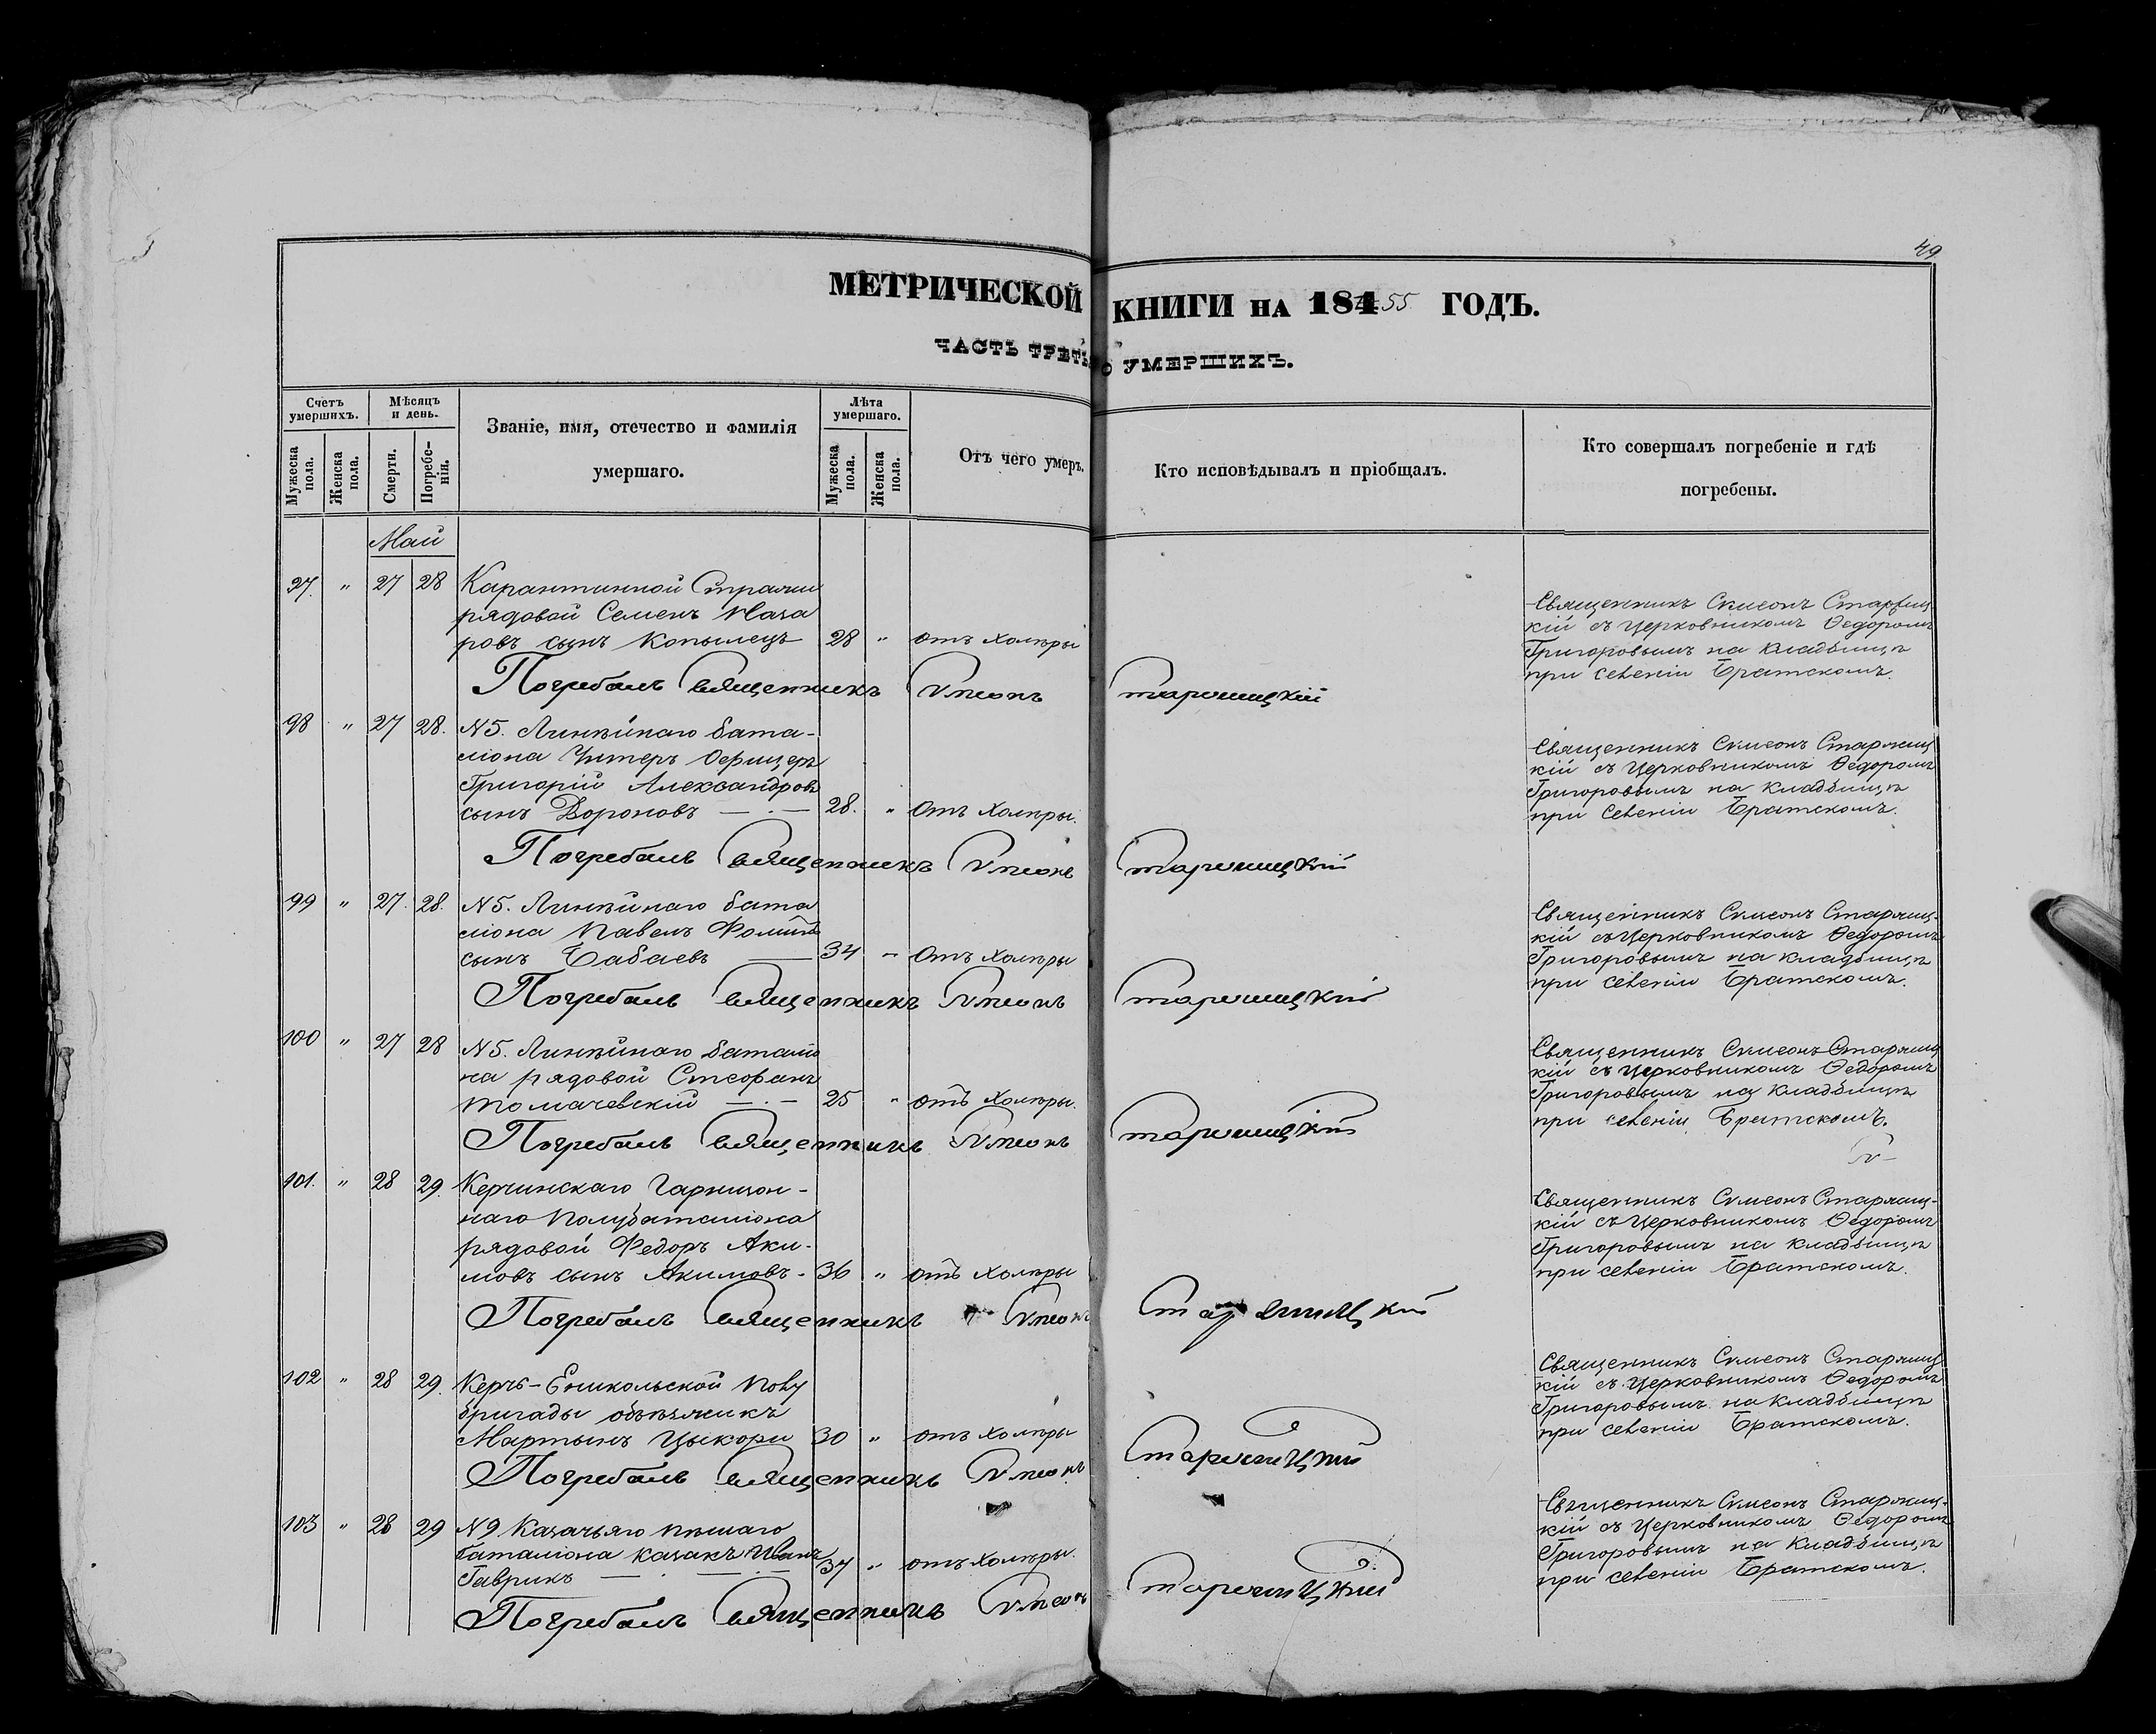 49
МЕТРИЧЕСКОЙ КНИГИ НА 184 55 ГОДЪ.
ЧАСТЬ ТРЕТЬ О УМЕРШИХЪ.
Счетъ умершихъ.
Мѣсяцъ и день.
Званіе, имя, отечество и фамилія умершаго.
Лѣта умершаго.
Отъ чего умеръ.
Кто исповѣдывалъ и пріобщалъ.
Кто совершалъ погребеніе и гдѣ погребены.
Мужеска пола.
Женска пола.
Смерти.
Погребенія.
Мужеска пола.
Женска пола.
Май
97. " 27 28 Карантинной Стражи
рядовой Семенъ Маза
ровъ сынъ Копылецъ 28 " отъ холеры
Священникъ Симеонъ Старжиц
кій съ церковникомъ Ѳедоромъ
Григоровымъ на кладбищѣ
при селеніи Братскомъ.
Погребалъ Священникъ Симеонъ Старжицкій
98 " 27 28. N5. Линѣйнаго бата-
ліона Унтеръ Офицеръ
Григорій Александровъ
сынъ Вороновъ 28. " Отъ холеры.
Священникъ Симеонъ Старжиц
кій съ церковникомъ Ѳедоромъ
Григоровымъ на кладбищѣ
при селеніи Братскомъ.
Погребалъ Священникъ Симеонъ Старжицкій
99 " 27. 28. N5. Линѣйнаго бата
ліона Павелъ Фоминъ
сынъ Бабаевъ 34 " Отъ холеры
Священникъ Симеонъ Старжиц-
кій съ церковникомъ Ѳедоромъ
Григоровымъ на кладбищѣ
при селеніи Братскомъ.
Погребалъ Священникъ Симеонъ Старжицкій
100 " 27 28 N5. Линѣйнаго баталіо
на рядовой Стефанъ
Томачевскій 25 " отъ холеры.
Священникъ Симеонъ Старжиц
кій съ церковникомъ Ѳедоромъ
Григоровымъ на кладбищѣ
при селеніи Братскомъ.
Погребалъ Священникъ Симеонъ Старжицкій
101. " 28 29. Керчинскаго Гарнизон-
наго полубаталіона
рядовой Федоръ Аки-
мовъ сынъ Акимовъ - 36 " отъ холеры
Священникъ Симеонъ Старжиц-
кій съ церковникомъ Ѳедоромъ
Григоровымъ на кладбищѣ
при селеніи Братскомъ.
Погребалъ Священникъ Симеонъ Старжицкій
102 " 28 29. Керчь-Еникольской полу
бригады объѣзчикъ
Мартынъ Цыкори 30 " отъ холеры
Священникъ Симеонъ Старжиц
кій съ церковникомъ Ѳедоромъ
Григоровымъ на кладбищѣ
при селеніи Братскомъ.
Погребалъ Священникъ Симеонъ Старжицкій
103 " 28 29 N9 Казачьяго пѣшаго
баталіона казакъ Иванъ
Гаврикъ 37 " отъ холеры.
Священникъ Симеонъ Старжиц-
кій съ церковникомъ Ѳедоромъ
Григоровымъ на кладбищѣ
при селеніи Братскомъ.
Погребалъ Священникъ Симеонъ Старжицкій